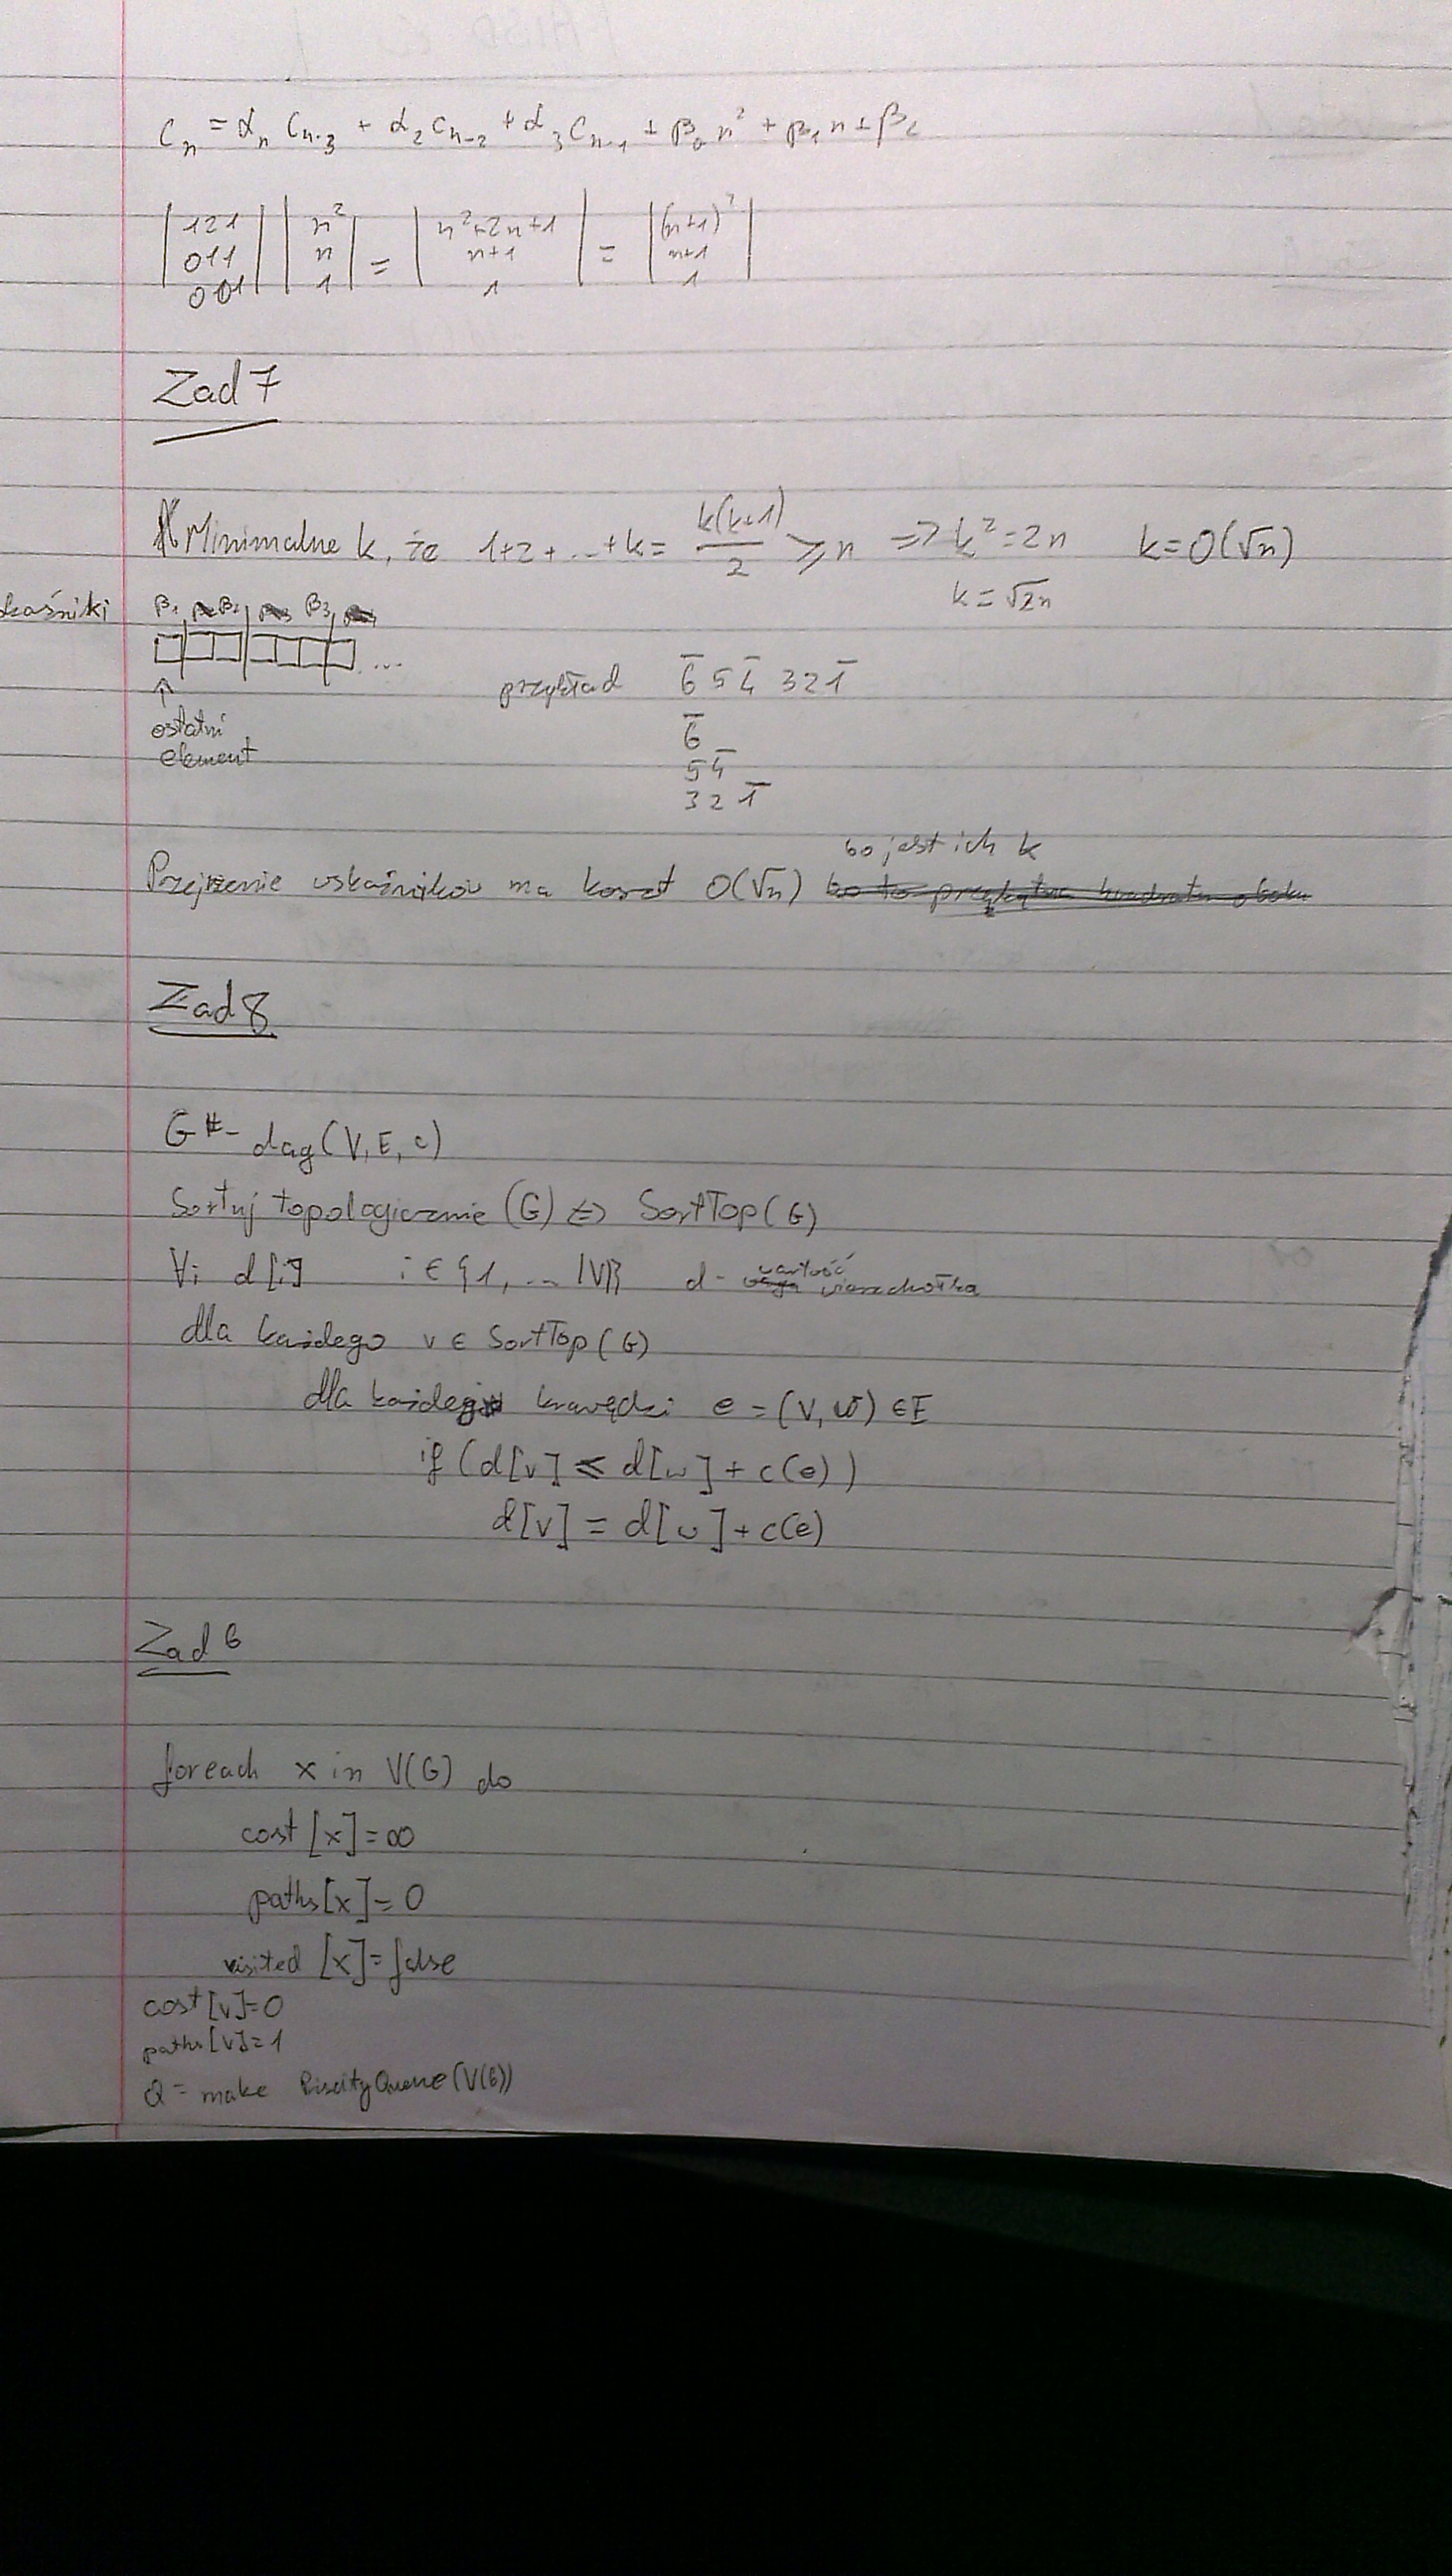 c_n = α_n c_{n-3} + α_2 c_{n-2} + α_3 c_{n-1} + β_0 n² + β_1 n + β_2
|1 2 1| |n²| = |n²+2n+1| = |(n+1)²|
|0 1 1| |n| |n+1| |n+1|
|0 0 1| |1| |1| |1|
Zad 7
Minimalne k, że 1+2+...+k = k(k+1)/2 ≥ n => k² = 2n k = O(√n)
k = √2n
kaźniki β_1 β_2 β_3
...
przykład 6̅ 5 4̅ 3 2 1̅
↑
ostatni
element
6̅
5 4̅
3 2 1̅
bo jest ich k
Przejrzenie wskaźników ma koszt O(√n)
Zad 8
G - dag(V, E, c)
Sortuj topologicznie (G) <=> SortTop(G)
∀i d[i] i ∈ {1, ... |V|} d - wartość wierzchołka
dla każdego v ∈ SortTop(G)
dla każdej krawędzi e = (v, w) ∈ E
if (d[v] ≤ d[w] + c(e))
d[v] = d[w] + c(e)
Zad 6
foreach x in V(G) do
cost [x] = ∞
paths[x] = 0
visited [x] = false
cost[v]=0
paths[v]=1
Q = make PriorityQueue(V(G))